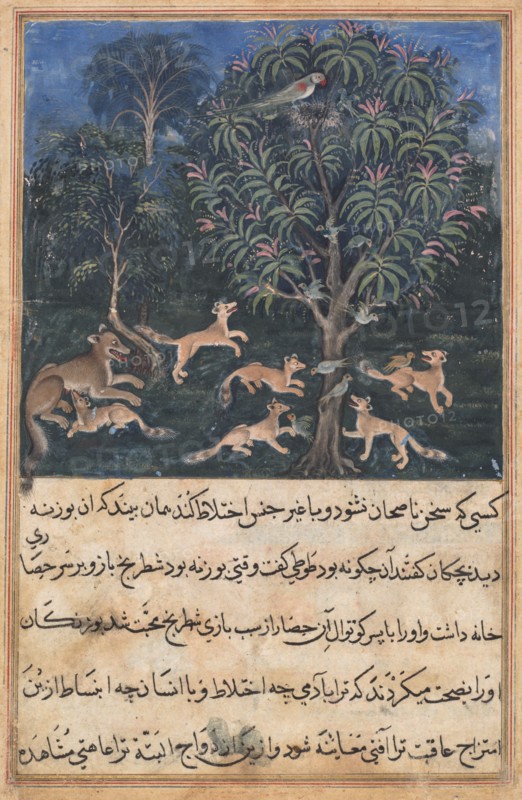 کسی که سخن ناصحان نشود و با غیر جنس اختلاط کند همان بیند که آن بوزنه
دید بچکان گفتند آن چگونه بود طوطی گفت وقتی بوزنه بود شطرنج باز و بر سر حصاری
خانه داشت و او را با پسر کوتوال آن حصار از سبب بازی شطرنج محبت شد بوزنکان
او را نصیحت میکردند که ترا با آدمی چه اختلاط و با انسان چه انبساط ازین
امتزاج عاقبت ترا آفتی معاینه شود و ازین ازدواج البته ترا عاهتی مشاهده
PHOTO12